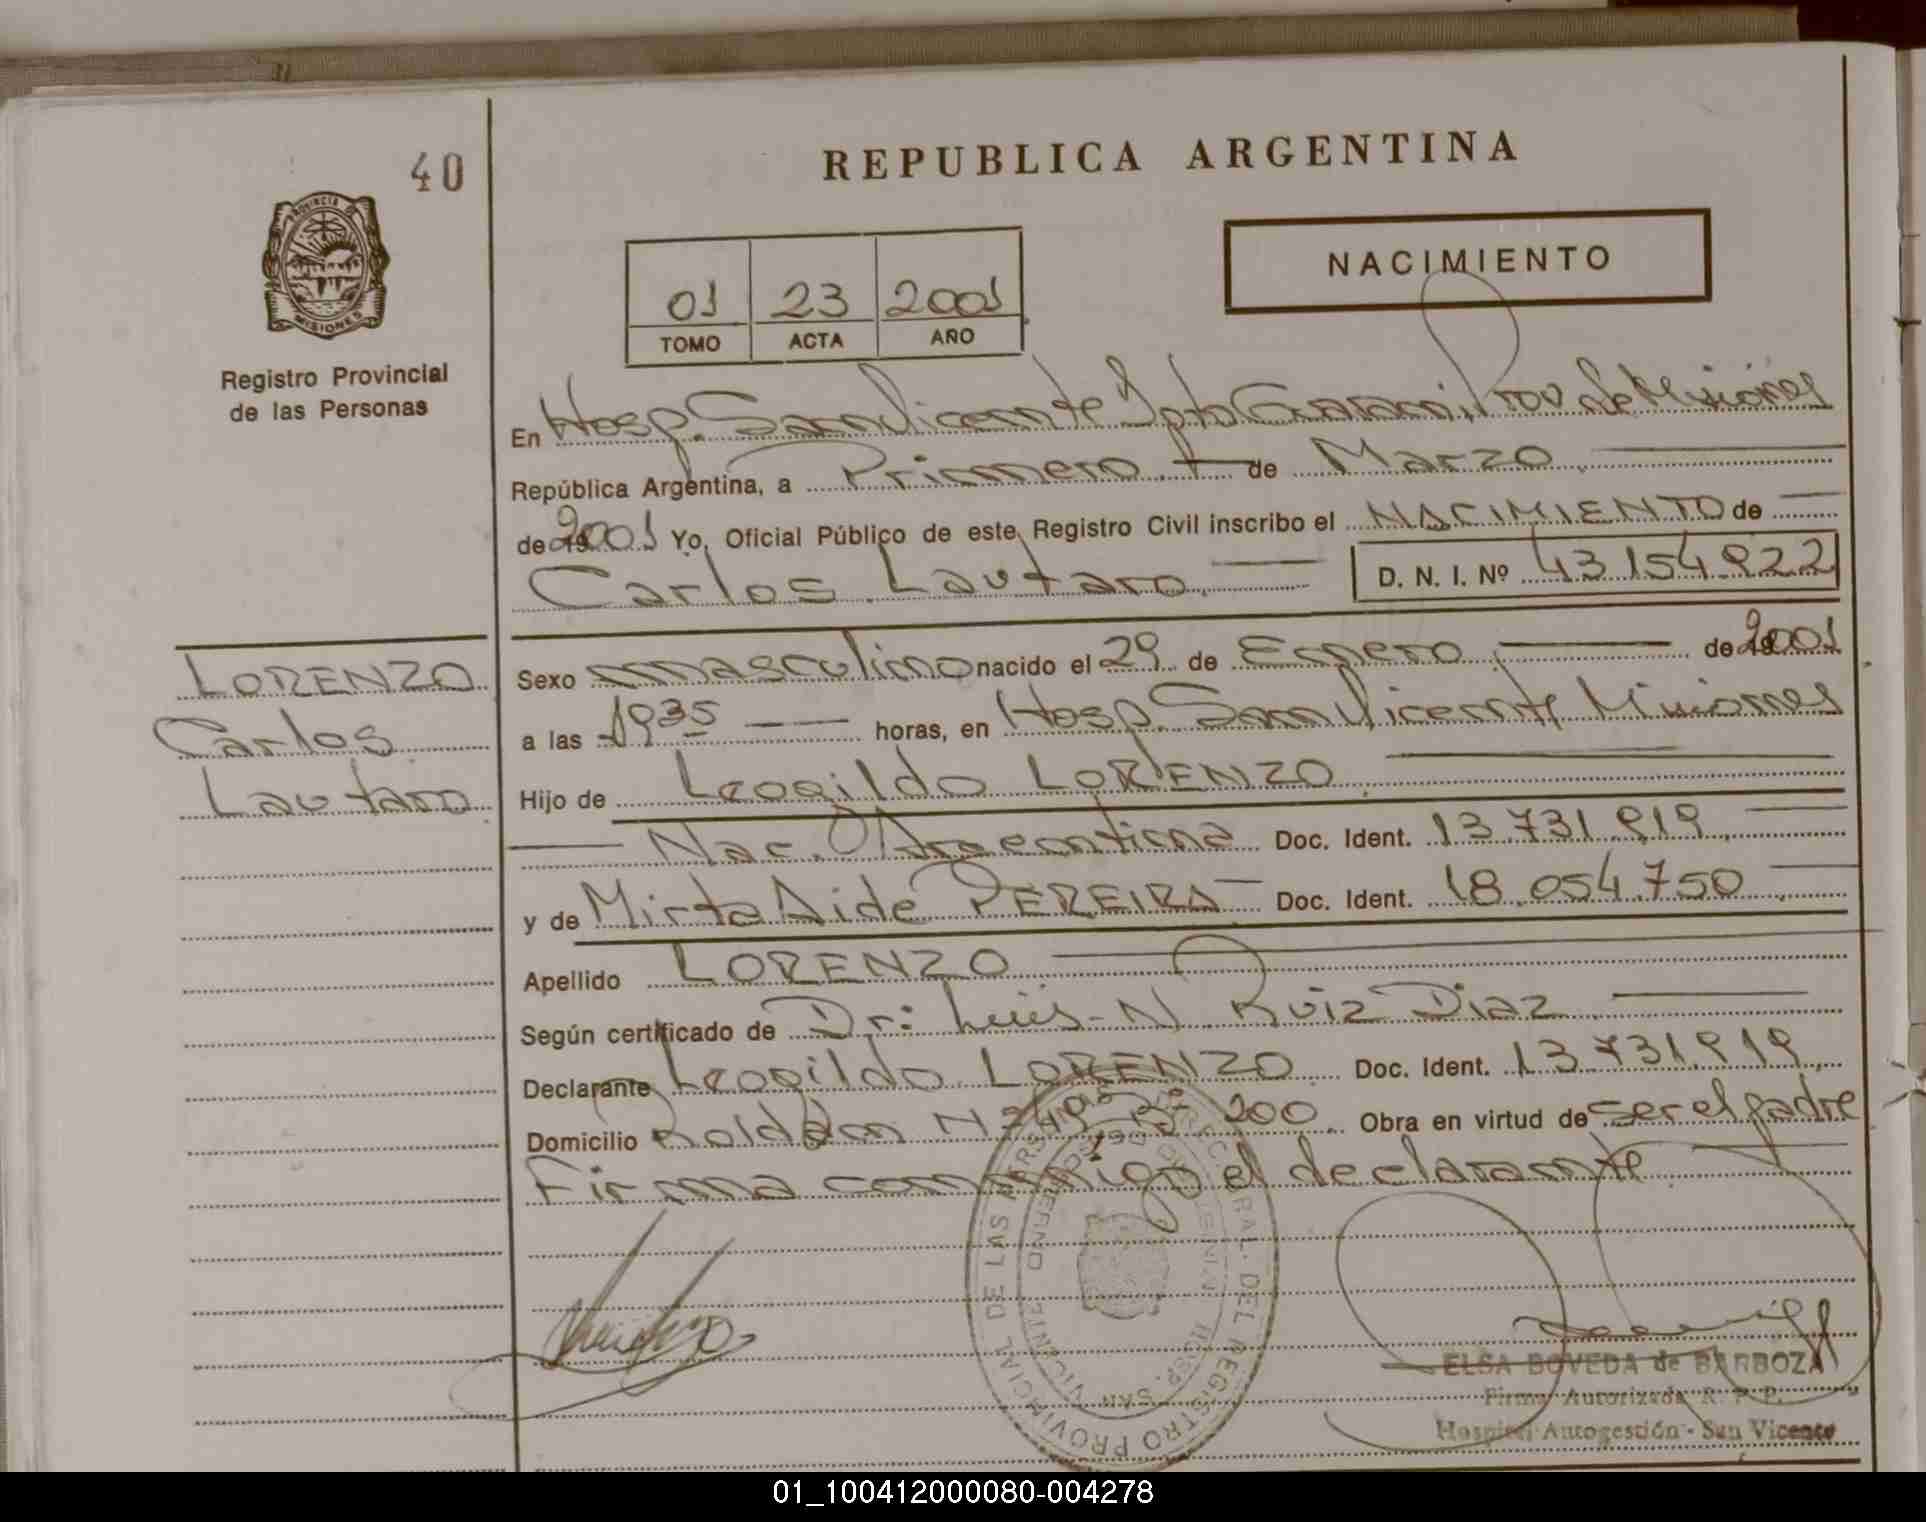 40
REPUBLICA ARGENTINA
PROVINCIA DE
MISIONES
Registro Provincial
de las Personas
01 23 2001
TOMO ACTA AÑO
NACIMIENTO
En Hosp. San Vicente Dpto Guarani, Prov de Misiones
República Argentina, a Primero de Marzo
de 2001 Yo, Oficial Público de este Registro Civil inscribo el NACIMIENTO de
Carlos Lautaro D. N. I. Nº 43.154.922
LORENZO
Carlos
Lautaro
Sexo masculino nacido el 29 de Enero de 2001
a las 1935 horas, en Hosp. San Vicente Misiones
Hijo de Leogildo LORENZO
Nac. Argentina Doc. Ident. 13.731.919
y de Mirta Aide PEREIRA Doc. Ident. 18.054.750
Apellido LORENZO
Según certificado de Dr: Luis N Ruiz Diaz
Declarante Leogildo LORENZO Doc. Ident. 13.731.919
Domicilio Roldan 200 Obra en virtud de ser el padre
Firma conmigo el declarante
ELSA BOVEDA de BARBOZA
Firma Autorizada R. P. P.
Hospital Autogestión - San Vicente
01_100412000080-004278